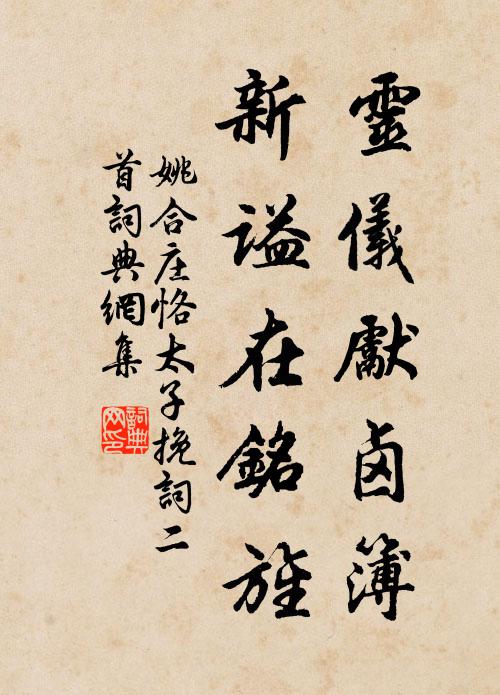 靈儀獻鹵簿
新謚在銘旌
姚合庄恪太子挽詞二
首詞典網集
詞典
网印